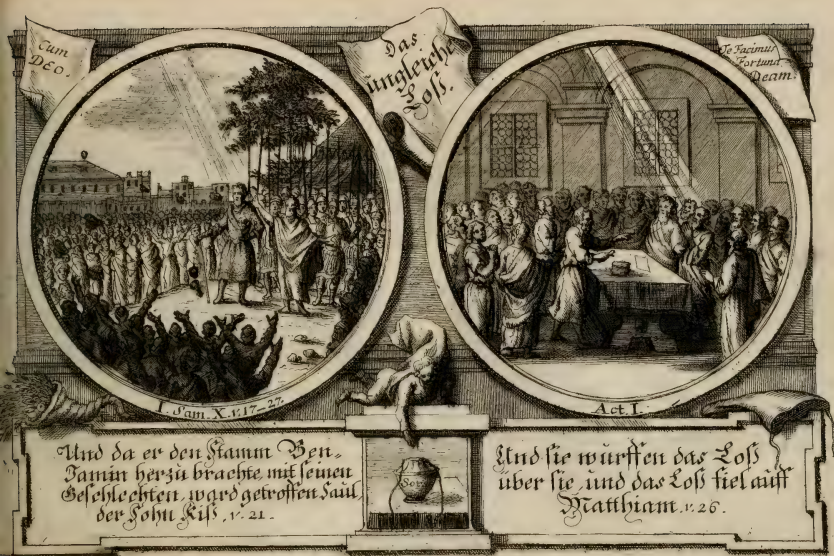 Cum
DEO.
Das
ungleiche
Loß.
Te Facimus
Fortuna
Deam.
I. Sam. X. v. 17–27.
Act. I.
Und da er den Stamm Ben-
Jamin herzu brachte mit seinen
Geschlechten, ward getroffen Saul,
der Sohn Kiß, v. 21.
Sors
Und sie wurffen das Loß
über sie, und das Loß fiel auff
Matthiam. v. 26.